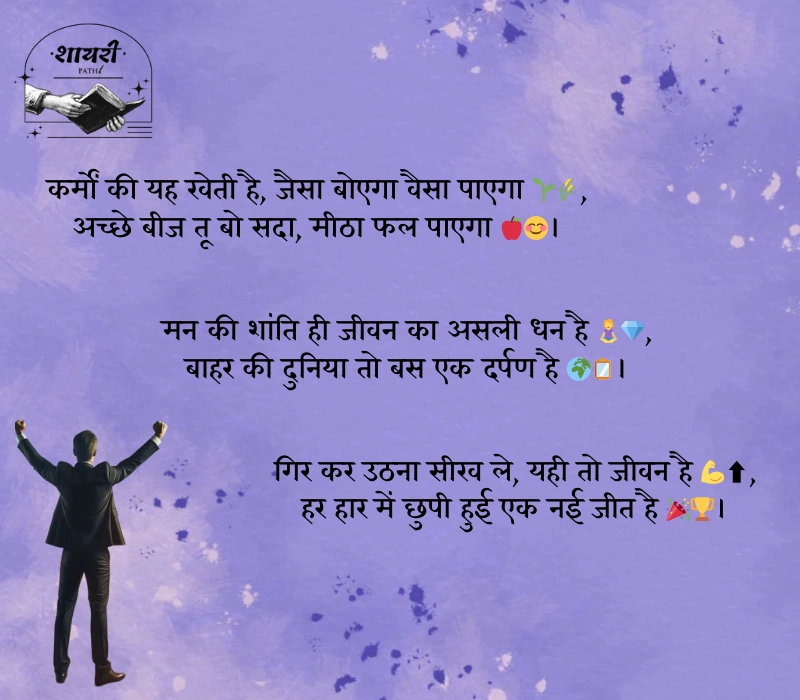 शायरी
PATH
कर्मों की यह खेती है, जैसा बोएगा वैसा पाएगा 🌱🌾,
अच्छे बीज तू बो सदा, मीठा फल पाएगा 🍎😊।
मन की शांति ही जीवन का असली धन है 🧘💎,
बाहर की दुनिया तो बस एक दर्पण है 🌍🪞।
गिर कर उठना सीख ले, यही तो जीवन है 💪⬆,
हर हार में छुपी हुई एक नई जीत है 🎉🏆।